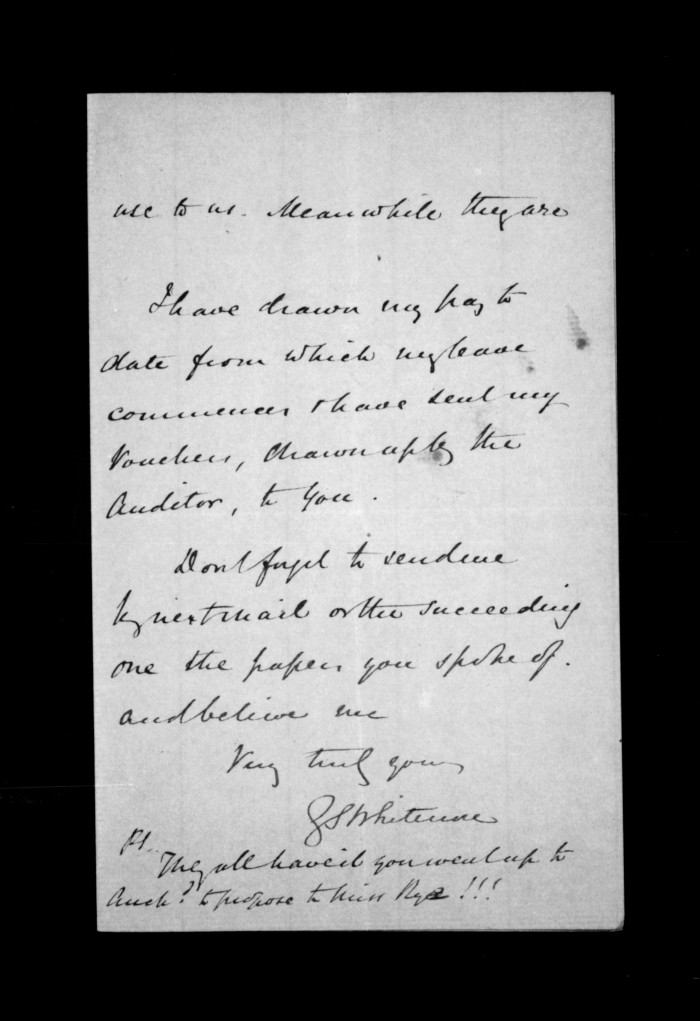 use to us. Meanwhile they are
I have drawn my pay to
date from which my leave
commences & have sent my
Vouchers, drawn up by the
Auditor, to you.
Don't forget to send me
by next mail or the succeeding
one the papers you spoke of.
and believe me
Very truly yours
G S Whitmore
PS.
They all have it you went up to
Auckd. to propose to Miss Rye !!!